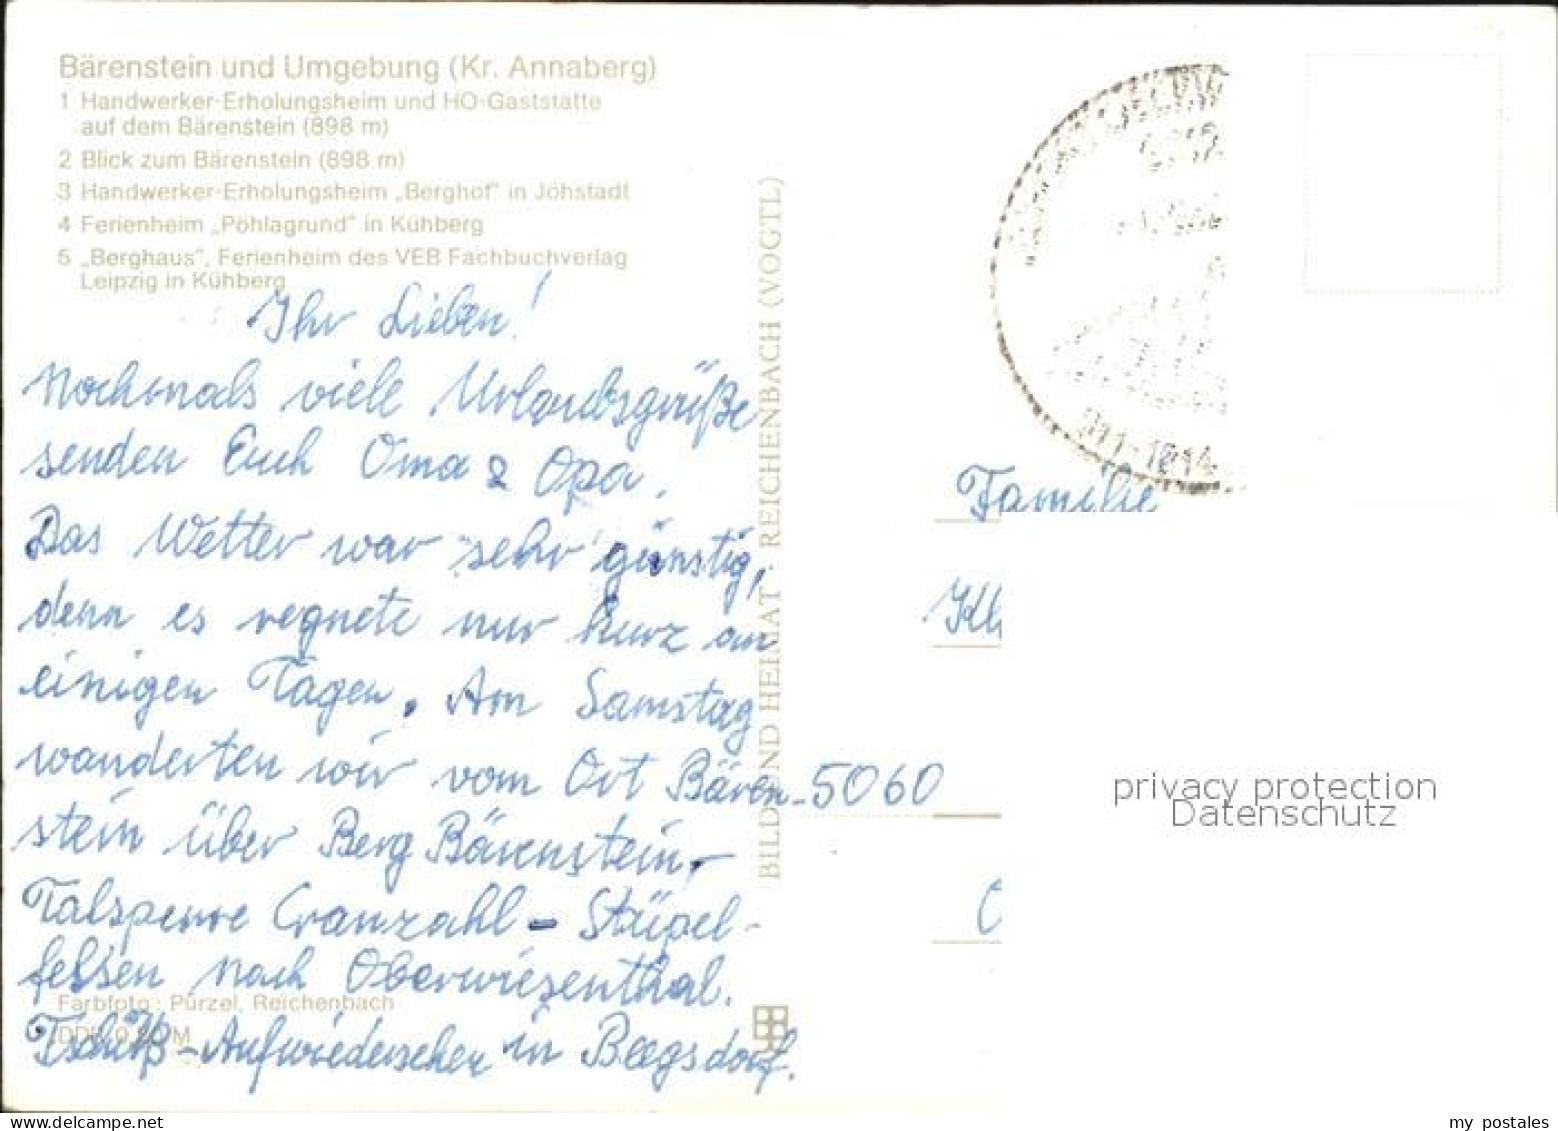 Bärenstein und Umgebung (Kr. Annaberg)
1 Handwerker-Erholungsheim und HO-Gaststätte
auf dem Bärenstein (898 m)
2 Blick zum Bärenstein (898 m)
3 Handwerker-Erholungsheim „Berghof" in Jöhstadt
4 Ferienheim „Pöhlagrund" in Kühberg
5 „Berghaus", Ferienheim des VEB Fachbuchverlag
Leipzig in Kühberg
Ihr Lieben!
Nochmals viele Urlaubsgrüße
senden Euch Oma & Opa.
Das Wetter war sehr günstig,
denn es regnete nur kurz an
einigen Tagen. Am Samstag
wanderten wir vom Ort Bären-
stein über Berg Bärenstein,-
Talsperre Cranzahl - Stüpel-
felsen nach Oberwiesenthal.
Tschüß - Aufwiedersehen in
Farbfoto: Pürzel, Reichenbach
BILD UND HEIMAT REICHENBACH (VOGTL)
Familie
5060
privacy protection
Datenschutz
my postales